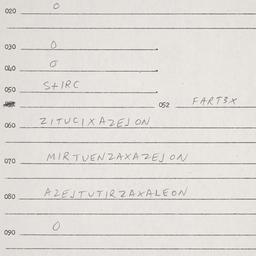 020 0
030 0
040 0
050 S+IRC
052 FART3X
060 ZITUCIXAZEJON
070 MIRTUENZAXAZEJON
080 AZEJTUTIRZAXALEON
090 0